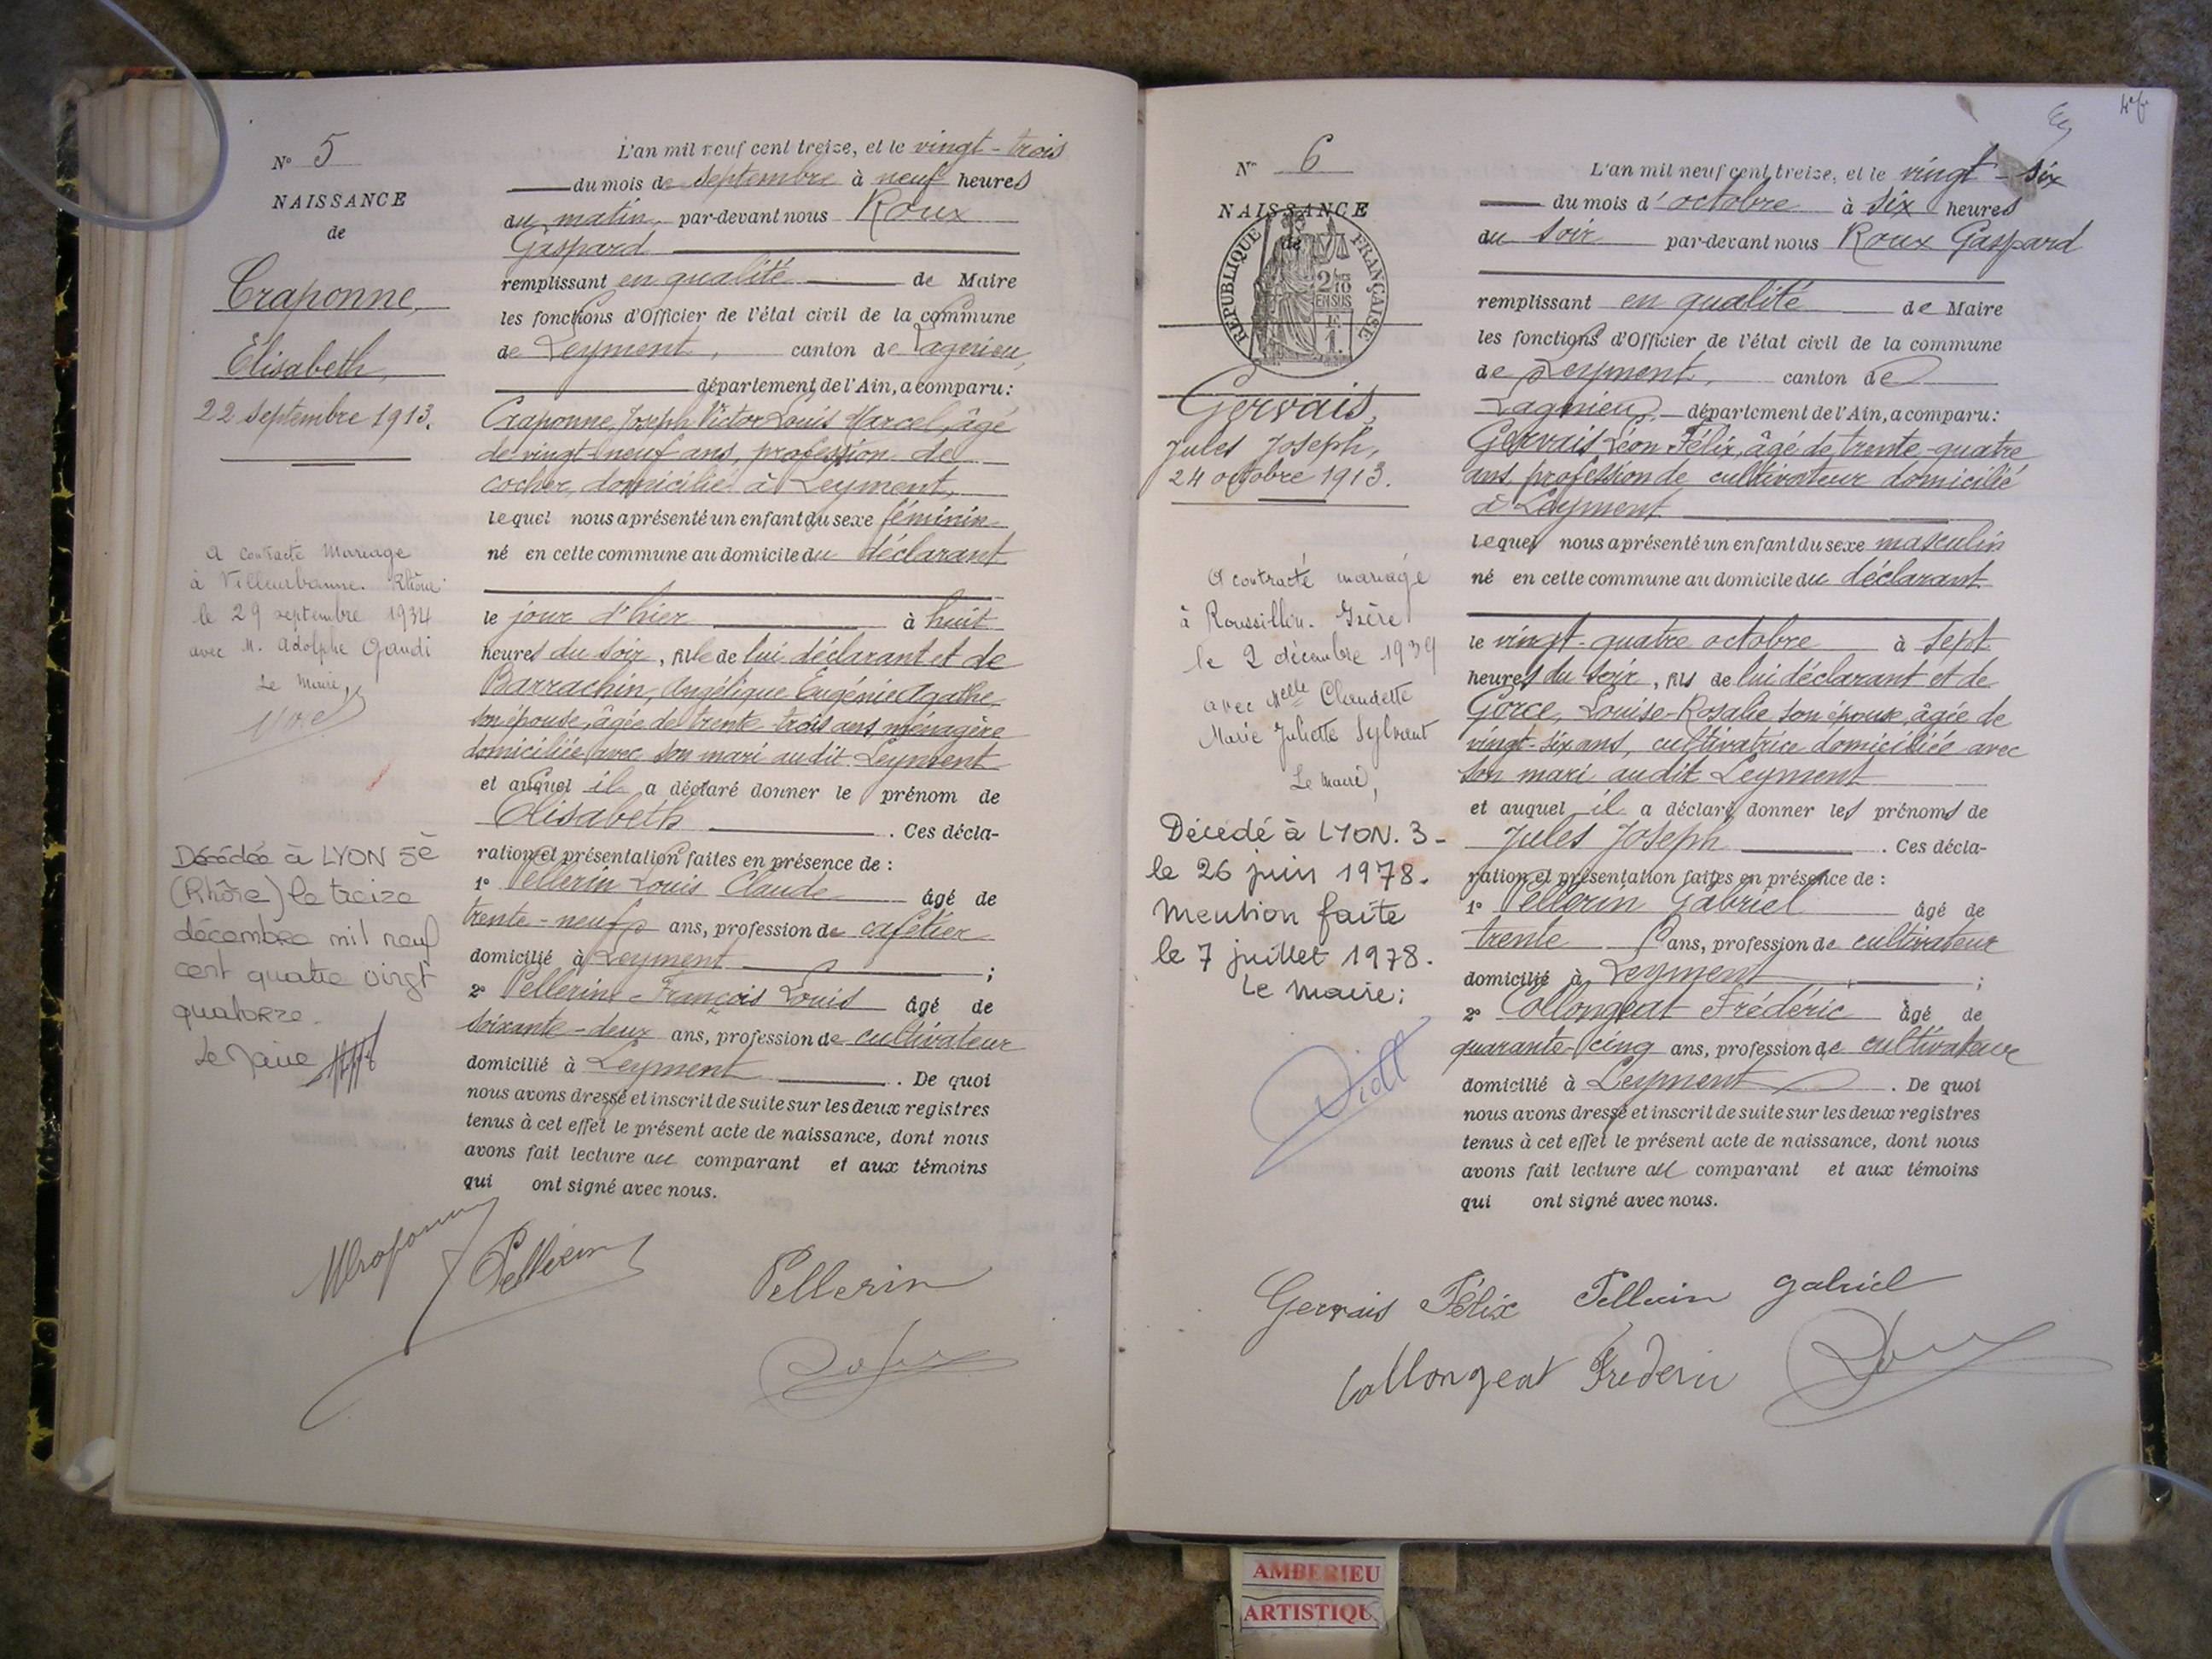 N° 5
NAISSANCE
de
Craponne,
Elisabeth,
22 septembre 1913.
A contracté Mariage
à Villeurbanne. Rhône
le 29 septembre 1934
avec M. Adolphe Gandi
Le Maire,
Décédée à LYON 5e
(Rhône) le treize
décembre mil neuf
cent quatre vingt
quatorze.
Le Maire
L'an mil neuf cent treize, et le vingt-trois
du mois de septembre à neuf heures
du matin, par-devant nous Roux
Gaspard
remplissant en qualité de Maire
les fonctions d'Officier de l'état civil de la commune
de Leyment, canton de Lagnieu,
département de l'Ain, a comparu:
Craponne, Joseph Victor Louis Marcel, âgé
de vingt-neuf ans, profession de
cocher, domicilié à Leyment,
lequel nous a présenté un enfant du sexe féminin
né en cette commune au domicile du déclarant
le jour d'hier à huit
heures du soir, fille de lui déclarant et de
Barrachin, Angélique Eugénie Agathe,
son épouse, âgée de trente-trois ans ménagère
domiciliée avec son mari audit Leyment
et auquel il a déclaré donner le prénom de
Elisabeth. Ces décla-
ration et présentation faites en présence de :
1° Pellerin Louis Claude âgé de
trente-neuf ans, profession de cafetier
domicilié à Leyment ;
2° Pellerin François Louis âgé de
soixante-deux ans, profession de cultivateur
domicilié à Leyment. De quoi
nous avons dressé et inscrit de suite sur les deux registres
tenus à cet effet le présent acte de naissance, dont nous
avons fait lecture au comparant et aux témoins
qui ont signé avec nous.
Pellerin Pellerin
N° 6
NAISSANCE
de
RÉPUBLIQUE FRANÇAISE
2/10
EN SUS
1.
Gervais,
Jules Joseph,
24 octobre 1913.
A contracté mariage
à Roussillon. Isère
le 2 décembre 1939
avec Melle Claudette
Marie Juliette Sylvant
Le Maire,
Décédé à LYON. 3-
le 26 juin 1978.
Mention faite
le 7 juillet 1978.
Le Maire:
L'an mil neuf cent treize, et le vingt-six
du mois d'octobre à six heures
du soir par-devant nous Roux Gaspard
remplissant en qualité de Maire
les fonctions d'Officier de l'état civil de la commune
de Leyment, canton de
Lagnieu, département de l'Ain, a comparu:
Gervais Léon Félix, âgé de trente-quatre
ans, profession de cultivateur domicilié
à Leyment
lequel nous a présenté un enfant du sexe masculin
né en cette commune au domicile du déclarant
le vingt-quatre octobre à sept
heures du soir, fils de lui déclarant et de
Gorce, Louise-Rosalie son épouse, âgée de
vingt-six ans, cultivatrice domiciliée avec
son mari audit Leyment
et auquel il a déclaré donner les prénoms de
Jules Joseph. Ces décla-
ration et présentation faites en présence de :
1° Pellerin Gabriel âgé de
trente ans, profession de cultivateur
domicilié à Leyment ;
2° Collongeat Frédéric âgé de
quarante-cinq ans, profession de cultivateur
domicilié à Leyment. De quoi
nous avons dressé et inscrit de suite sur les deux registres
tenus à cet effet le présent acte de naissance, dont nous
avons fait lecture au comparant et aux témoins
qui ont signé avec nous.
Gervais Félix Pellerin gabriel
Collongeat Frederic
AMBERIEU
ARTISTIQU